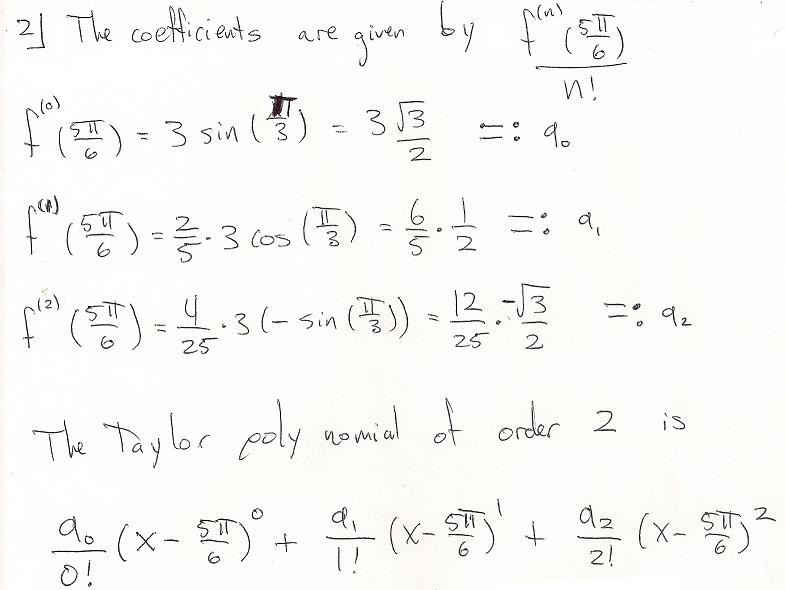 2] The coefficients are given by f^(n)(5π/6)/n!
f^(0)(5π/6) = 3 sin(π/3) = 3 √3/2 =: a₀
f^(1)(5π/6) = 2/5 · 3 cos(π/3) = 6/5 · 1/2 =: a₁
f^(2)(5π/6) = 4/25 · 3(-sin(π/3)) = 12/25 · -√3/2 =: a₂
The Taylor polynomial of order 2 is
a₀/0! (x - 5π/6)^0 + a₁/1! (x - 5π/6)^1 + a₂/2! (x - 5π/6)^2